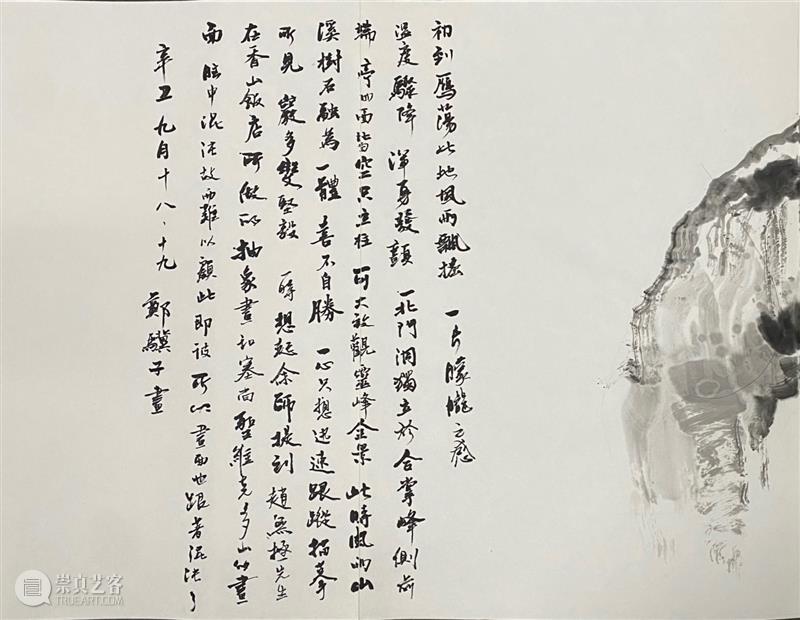 初到雁蕩此地風雨飄搖 一片朦朧之感
温度驟降 渾身發顫 一北門洞獨立於合掌峰側前
端 亭四面皆空只立柱 可大放觀靈峰全景 此時風雨山
溪樹石融為一體 喜不自勝 一心只想迅速跟蹤描摹
所見 巖多變堅毅 一時想起余師提到趙無極先生
在香山飯店所做的抽象畫和塞尚聖維克多山的畫
面 中混沌故而難以顧此即彼 所以畫面也跟著混沌了
辛丑九月十八、十九 鄭驥子畫
崇真艺客
TRUEART.COM